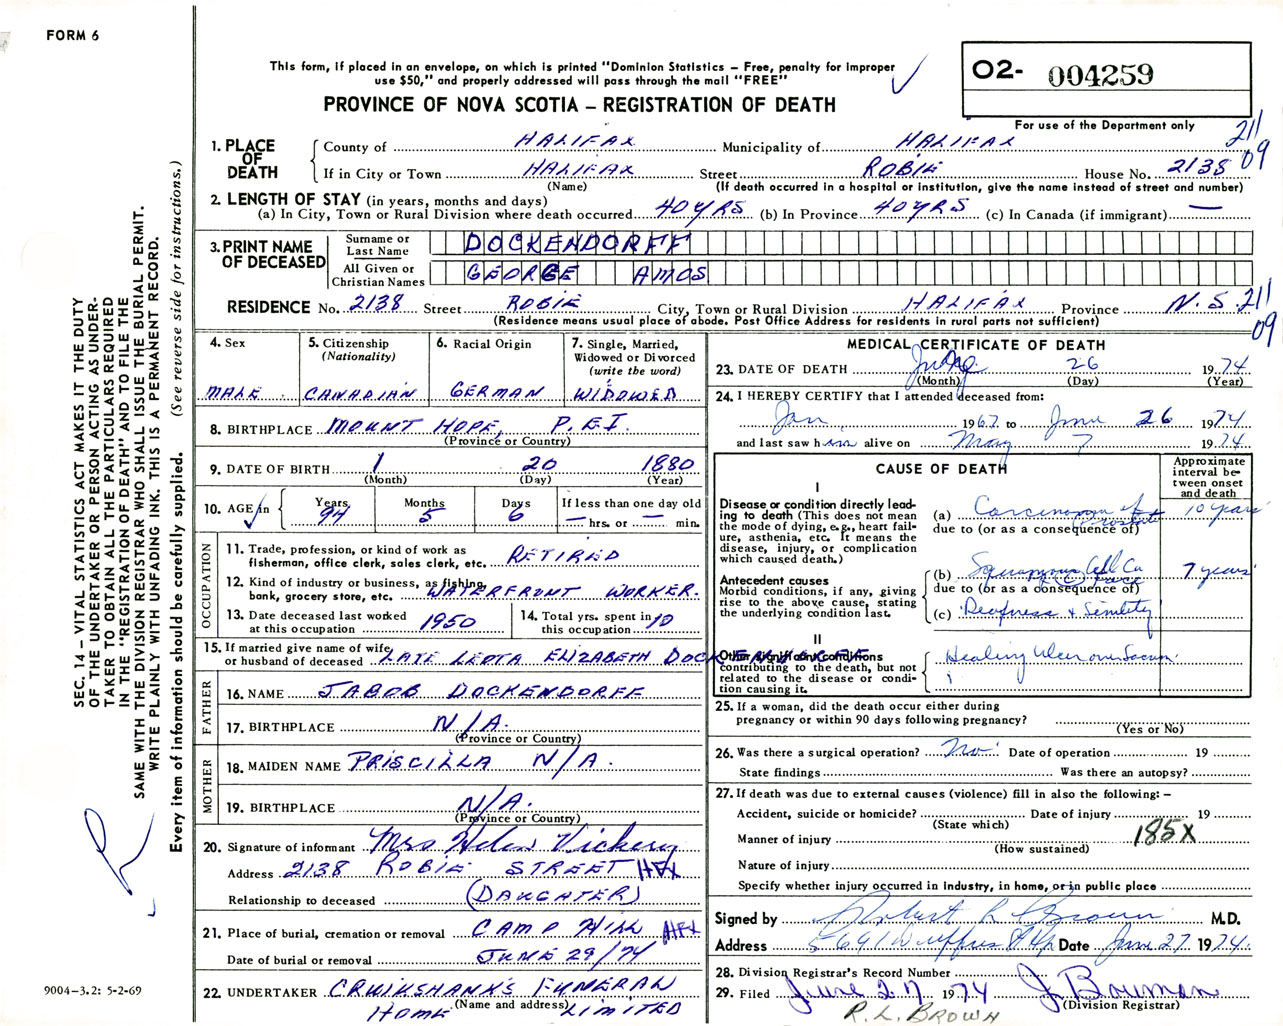 FORM 6
This form, if placed in an envelope, on which is printed "Dominion Statistics – Free, penalty for improper
use $50," and properly addressed will pass through the mail "FREE"
O2- 004259
PROVINCE OF NOVA SCOTIA – REGISTRATION OF DEATH
For use of the Department only
211
09
1. PLACE OF DEATH
County of HALIFAX Municipality of HALIFAX
If in City or Town HALIFAX Street ROBIE House No. 2138
(Name) (If death occurred in a hospital or institution, give the name instead of street and number)
2. LENGTH OF STAY (in years, months and days)
(a) In City, Town or Rural Division where death occurred 40 YRS (b) In Province 40 YRS (c) In Canada (if immigrant) —
3. PRINT NAME OF DECEASED
Surname or Last Name DOCKENDORFF
All Given or Christian Names GEORGE AMOS
RESIDENCE No. 2138 Street ROBIE City, Town or Rural Division HALIFAX Province N.S. 211
09
(Residence means usual place of abode. Post Office Address for residents in rural parts not sufficient)
4. Sex
MALE
5. Citizenship
(Nationality)
CANADIAN
6. Racial Origin
GERMAN
7. Single, Married,
Widowed or Divorced
(write the word)
WIDOWED
8. BIRTHPLACE MOUNT HOPE, P.E.I.
(Province or Country)
9. DATE OF BIRTH 1 20 1880
(Month) (Day) (Year)
10. AGE in Years 94 Months 5 Days 6 If less than one day old
— hrs. or — min.
OCCUPATION
11. Trade, profession, or kind of work as
fisherman, office clerk, sales clerk, etc. RETIRED
12. Kind of industry or business, as fishing,
bank, grocery store, etc. WATERFRONT WORKER.
13. Date deceased last worked
at this occupation 1950
14. Total yrs. spent in
this occupation 10
15. If married give name of wife
or husband of deceased LATE LEOTA ELIZABETH DOCKENDORFF
FATHER
16. NAME JABOB DOCKENDORFF
17. BIRTHPLACE N/A.
(Province or Country)
MOTHER
18. MAIDEN NAME PRISCILLA N/A.
19. BIRTHPLACE N/A.
(Province or Country)
20. Signature of informant Mrs Helen Vickery
Address 2138 ROBIE STREET HFX
Relationship to deceased (DAUGHTER)
21. Place of burial, cremation or removal CAMP HILL HFX
Date of burial or removal JUNE 29/74
22. UNDERTAKER CRUIKSHANK'S FUNERAL
(Name and address)
HOME LIMITED
MEDICAL CERTIFICATE OF DEATH
23. DATE OF DEATH 26 1974
(Month) (Day) (Year)
24. I HEREBY CERTIFY that I attended deceased from:
Jan. 1967 to June 26 1974
and last saw him alive on May 7 1974
CAUSE OF DEATH
Approximate
interval be-
tween onset
and death
I
Disease or condition directly lead-
ing to death (This does not mean
the mode of dying, e.g., heart fail-
ure, asthenia, etc. It means the
disease, injury, or complication
which caused death.)
(a) Carcinoma of Prostate 10 years
due to (or as a consequence of)
Antecedent causes
Morbid conditions, if any, giving
rise to the above cause, stating
the underlying condition last.
(b) Squamous Cell Ca of Face 7 years
due to (or as a consequence of)
(c) Deafness & Senility
II
Other significant conditions
contributing to the death, but not
related to the disease or condi-
tion causing it.
Healing Ulcer over Sacrum
25. If a woman, did the death occur either during
pregnancy or within 90 days following pregnancy?
(Yes or No)
26. Was there a surgical operation? No. Date of operation 19
State findings Was there an autopsy?
27. If death was due to external causes (violence) fill in also the following: –
Accident, suicide or homicide? Date of injury 19
(State which)
Manner of injury 185X
(How sustained)
Nature of injury
Specify whether injury occurred in industry, in home, or in public place
Signed by Robert L Brown M.D.
Address 5691 Duffus St Hfx Date June 27 1974
28. Division Registrar's Record Number
29. Filed June 27 1974 J Bowman
(Division Registrar)
R. L. BROWN
SEC. 14 – VITAL STATISTICS ACT MAKES IT THE DUTY
OF THE UNDERTAKER OR PERSON ACTING AS UNDER-
TAKER TO OBTAIN ALL THE PARTICULARS REQUIRED
IN THE "REGISTRATION OF DEATH" AND TO FILE THE
SAME WITH THE DIVISION REGISTRAR WHO SHALL ISSUE THE BURIAL PERMIT.
WRITE PLAINLY WITH UNFADING INK. THIS IS A PERMANENT RECORD.
Every item of information should be carefully supplied. (See reverse side for instructions.)
9004-3.2: 5-2-69